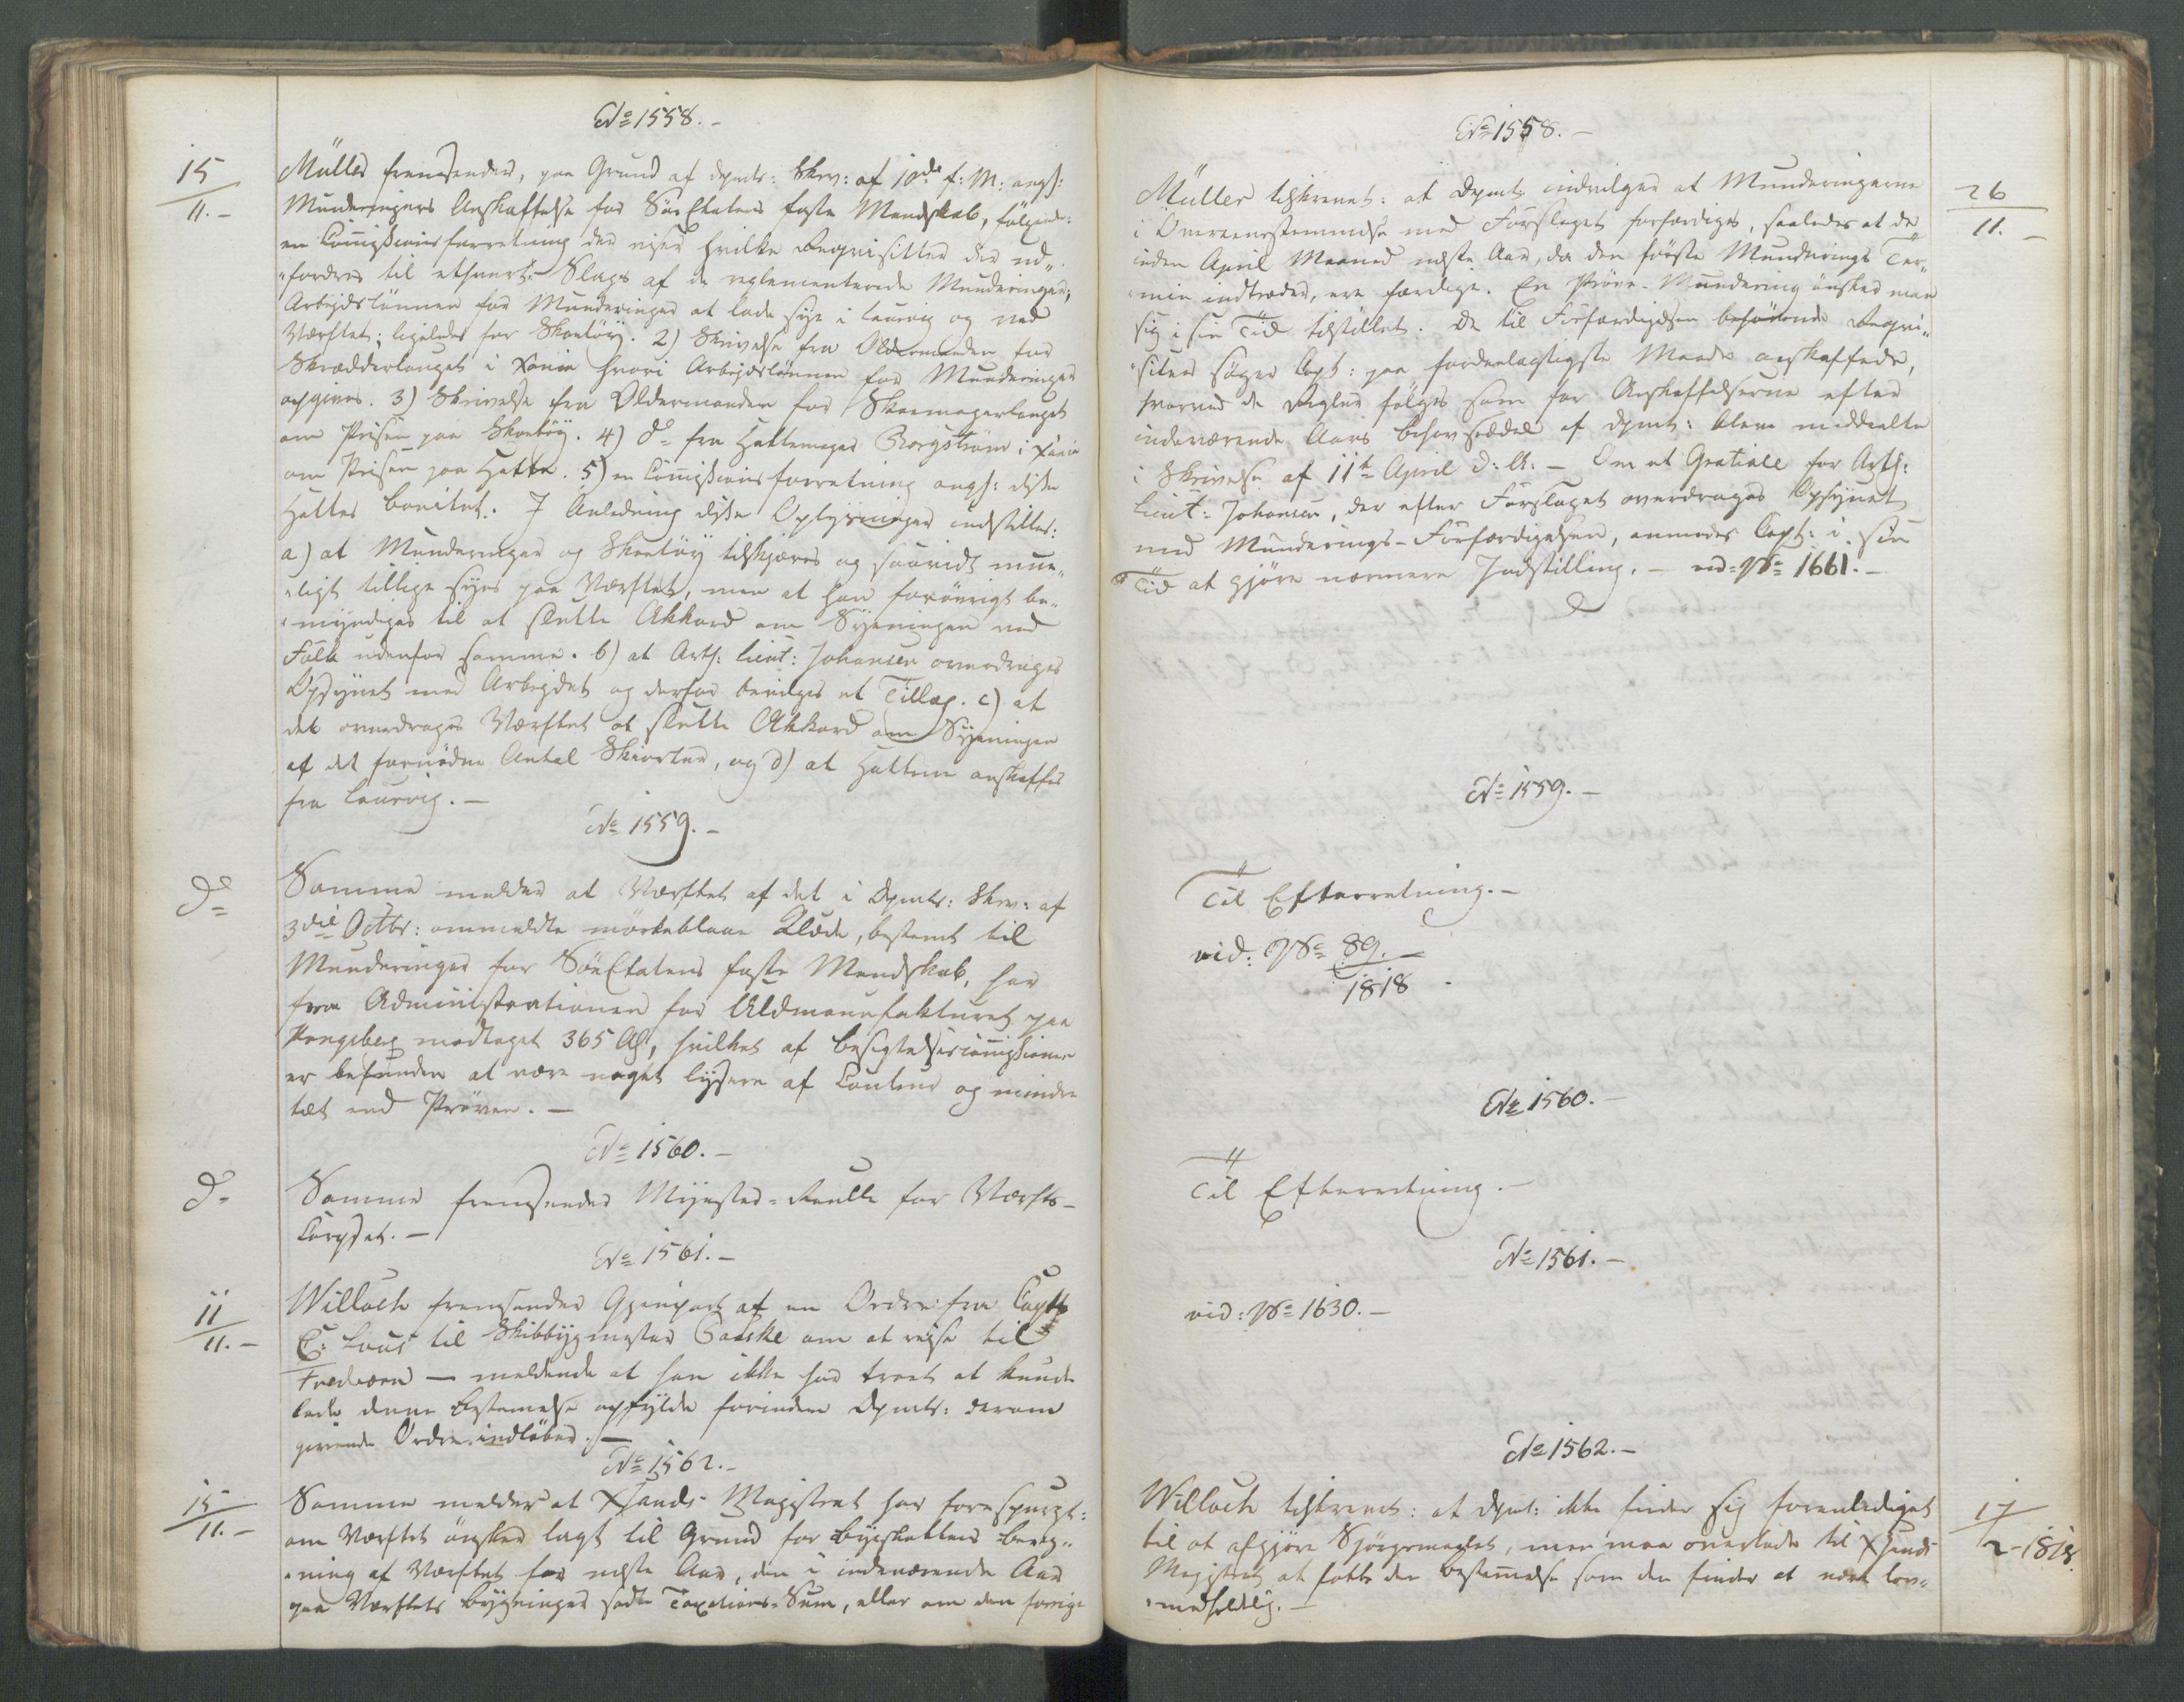 No 1558.-
15
11.-
Müller fremsender, paa Grund af Dpmts: Skriv: af 10de f: M: angl:
Munderingers Anskaffelse for Söe Etatens faste Mandskab, følgende:
en Commissionsforretning der viser hvilke Reqvisitter der ud„
„fordres til ethvert Slags af de reglementerede Munderinger,
Arbejdslönnen for Munderinger at lade sye i Laurvig og ved
Værftet; ligeledes for Skoetöÿ. 2) Skrivelse fra Oldermanden for
Skrædderlauget i Xania hvori Arbejdslönnen for Munderinger
opgives. 3) Skrivelse fra Oldermanden for Skoemagerlauget
om Prisen paa Skoetöÿ. 4) Do fra Hattemager Borgström i Xania
om Prisen paa Hatte. 5) en Commissionsforretning angl: disse
Hattes bonitet. I Anledning disse Oplysninger indstilles:
a) at Munderinger og Skoetöÿ tilskjæres og saavidt mue„
„ligt tillige syes paa Værftet, men at han forövrigt be„
„myndiges til at slutte Akkord om Syeningen med
Folk udenfor samme. b) at Artl: Lieut: Johansen overdrages
Opsynet med Arbejdet og derfor bevilges et Tillæg. c) at
det overdrages Værftet at slutte Akkord om Syeningen
af det fornödne Antal Skiorter, og d) at Hattene anskaffes
fra Laurvig.-
No 1559.-
Do
Samme melder at Værftet af det i Dpmts: Skriv: af
3die Octbr: ommeldte mörkeblaae Klæde, bestemt til
Munderinger for SöeEtatens faste Mandskab, har
fra Administrationen for Uldmanufakturet paa
Kongsberg modtaget 365 Al, hvilket af Besigtelsescommissionen
er befunden at være noget lysere af Couleur og mindre
tæt end Pröven.-
No 1560.-
Do
Samme fremsender Mynster-Rulle for Værfts-
Corpset.-
No 1561.-
11
11.-
Willoch fremsender Gjenpart af en Ordre fra Capt:
C: Lous til Skibbygmester om at rejse til
Fredværn - meldende at han ikke har troet at kunde
lade denne Bestemmelse opfylde forinden Dpmts: derom
givende Ordre indlöber.-
No 1562.-
15
11.-
Samme melder at Xsands Magistrat har forespurgt:
om Værftet önsker lagt til Grund for Byeskattens Bereg„
„ning af Værftet for næste Aar, den i indeværende Aar
paa Værftets Bygninger satte Taxations-Sum, eller om den forrige
No 1558.-
26
11.-
Müller tilskrevet: at Dpmt: indvilger at Munderingerne
i Overeensstemmelse med Forslaget forfærdiges, saaledes at de
inden April Maaned næste Aar, da den förste Munderings Ter„
„min indtræder, ere færdige. En Pröve-Mundering önsker man
sig i sin Tid tilstillet. De til Forfærdigelsen behövende Reqvi„
„siter söger Capt: paa fordeelagtigste Maade anskaffede,
hvorved de Regler fölges som for Anskaffelserne efter
indeværende Aars behovseddel af Dpmt: bleve meddeelte
i Skrivelse af 11te April d: A:- Om et Gratiale for Artl:
Lieut: Johansen, der efter Forslaget overdrages Opsynet
med Munderings-Forfærdigelsen, anmodes Capt: i sin
Tid at gjöre nærmere Indstilling.- vid: No 1661.-
No 1559.-
Til Efterretning.-
vid: No 89.-
1818.
No 1560.-
Til Efterretning.-
No 1561.-
vid: No 1630.-
No 1562.-
17
2-1818.
Willoch tilskrevet: at Dpmt: ikke finder sig foranlediget
til at afgjöre Spörgsmaalet, men maa overlade til Xsands
Magistrat at fatte den Bestemmelse som den finder at være lov„
„medholdlig.-